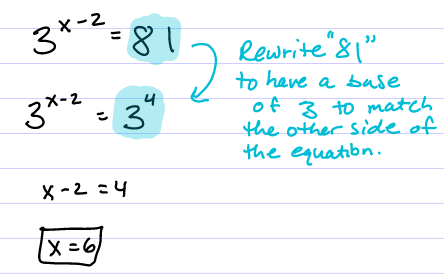 3^(x-2) = 81
Rewrite "81"
to have a base
of 3 to match
the other side of
the equation.
3^(x-2) = 3^4
x-2 = 4
x=6